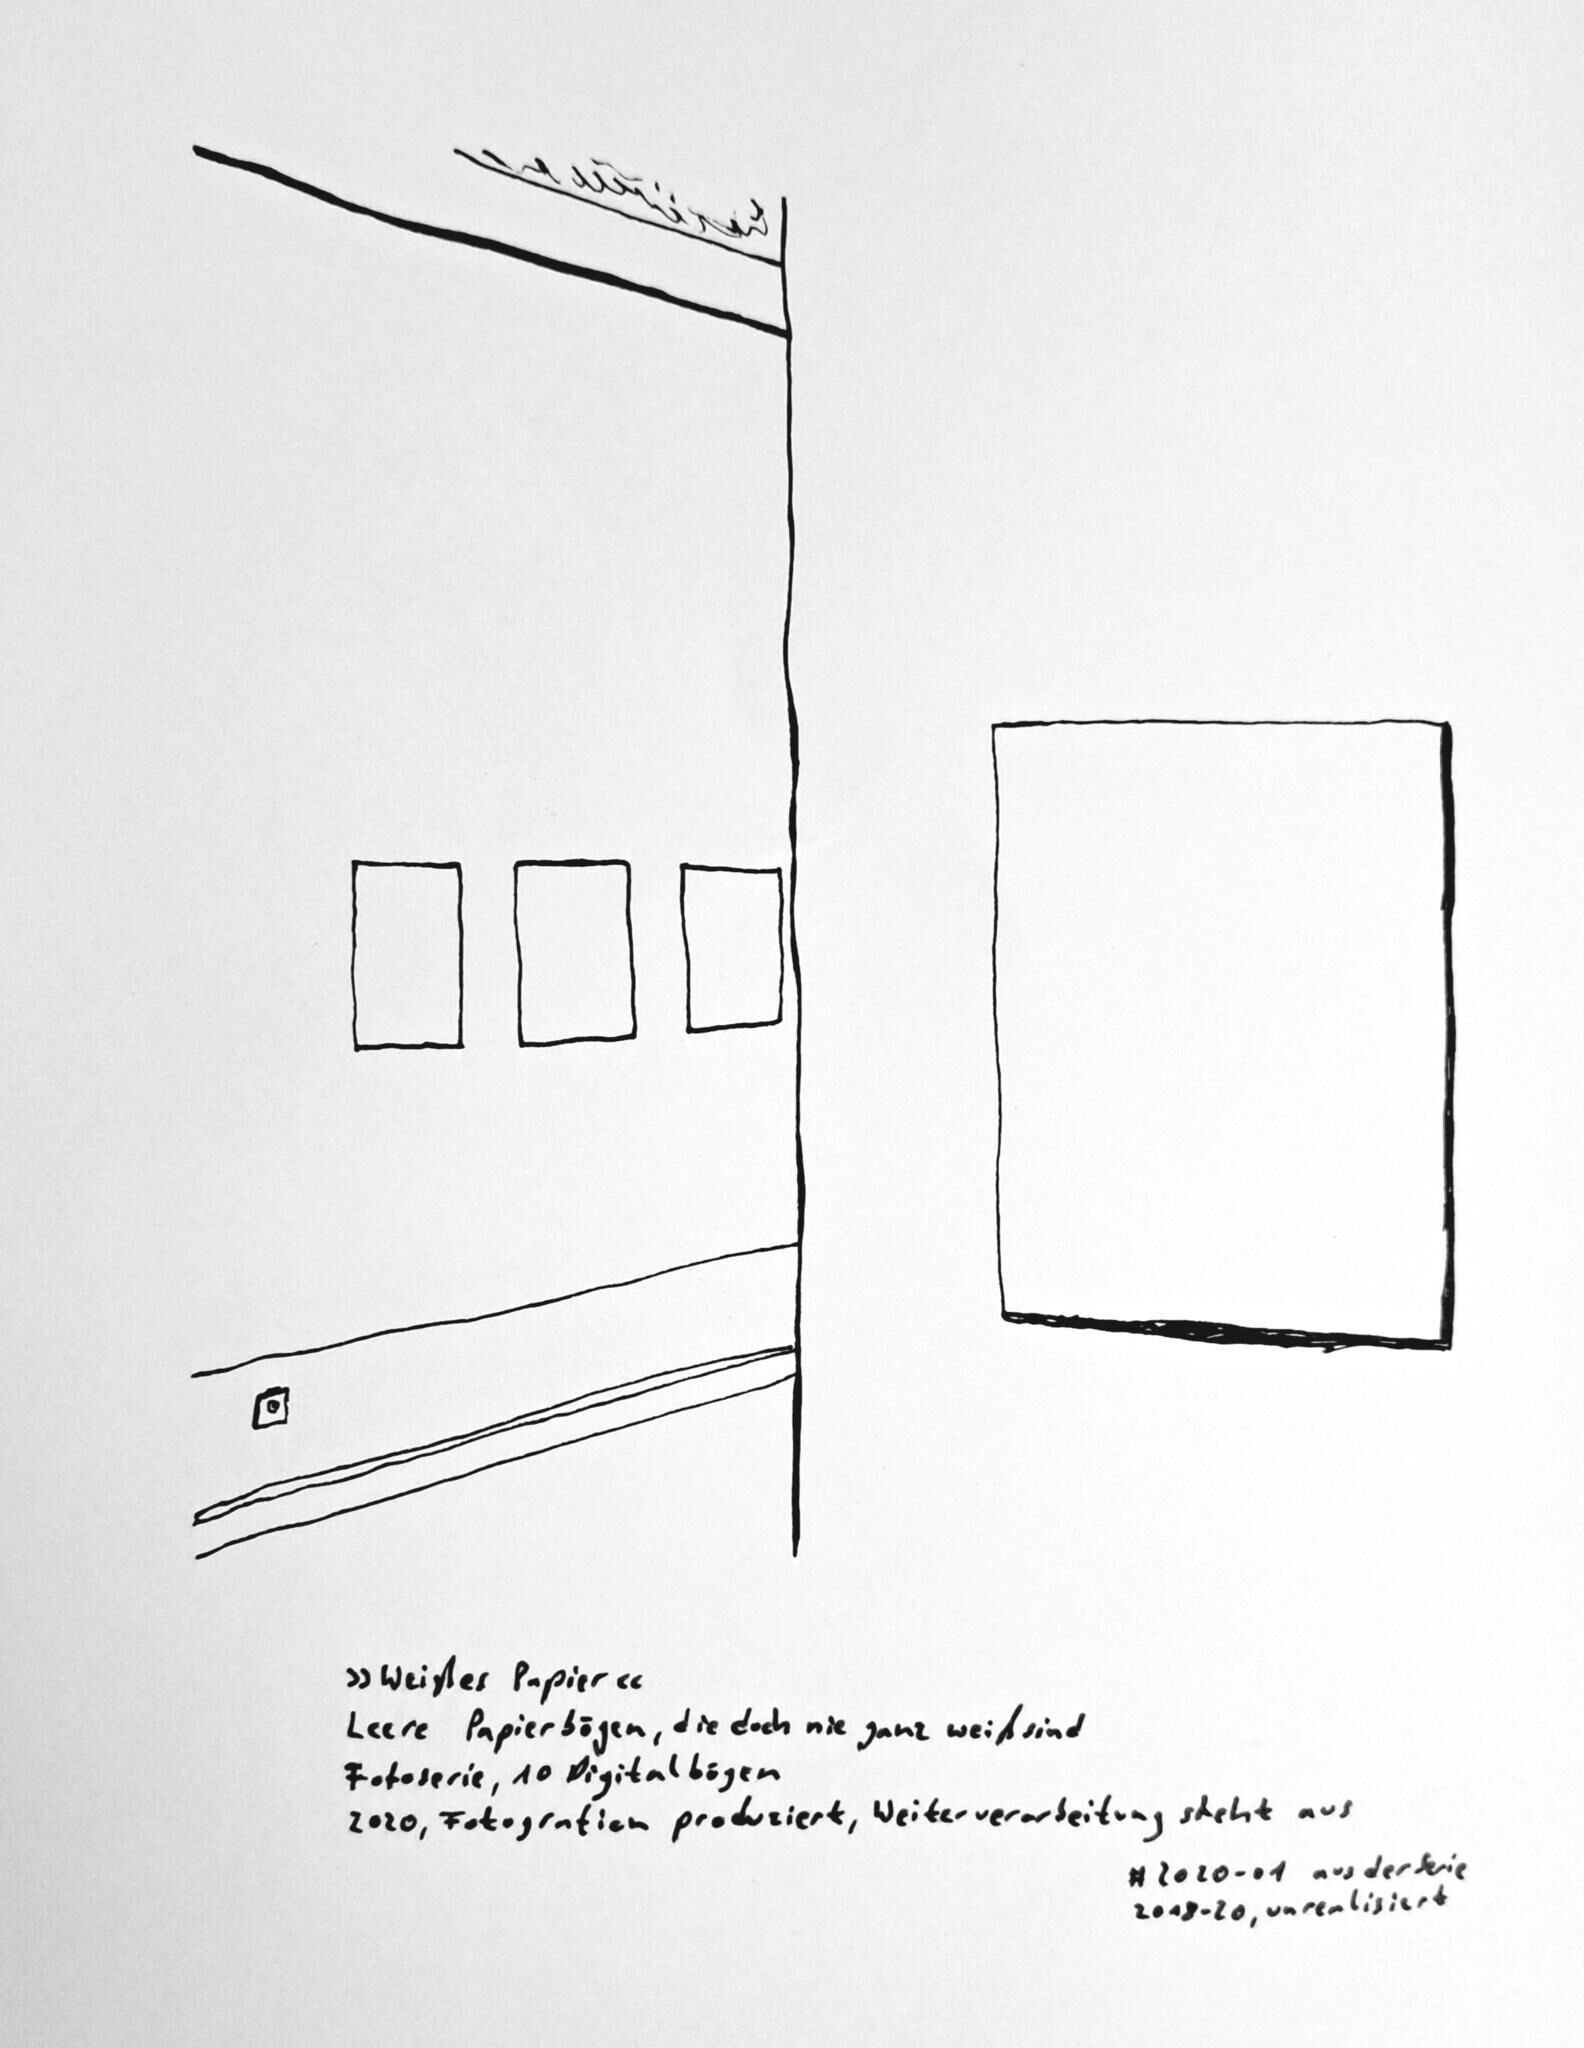 »Weißes Papier«
Leere Papierbögen, die doch nie ganz weiß sind
Fotoserie, 10 Digitalbögen
2020, Fotografien produziert, Weiterverarbeitung steht aus
#2020-01 aus der Serie
2018-20, unrealisiert